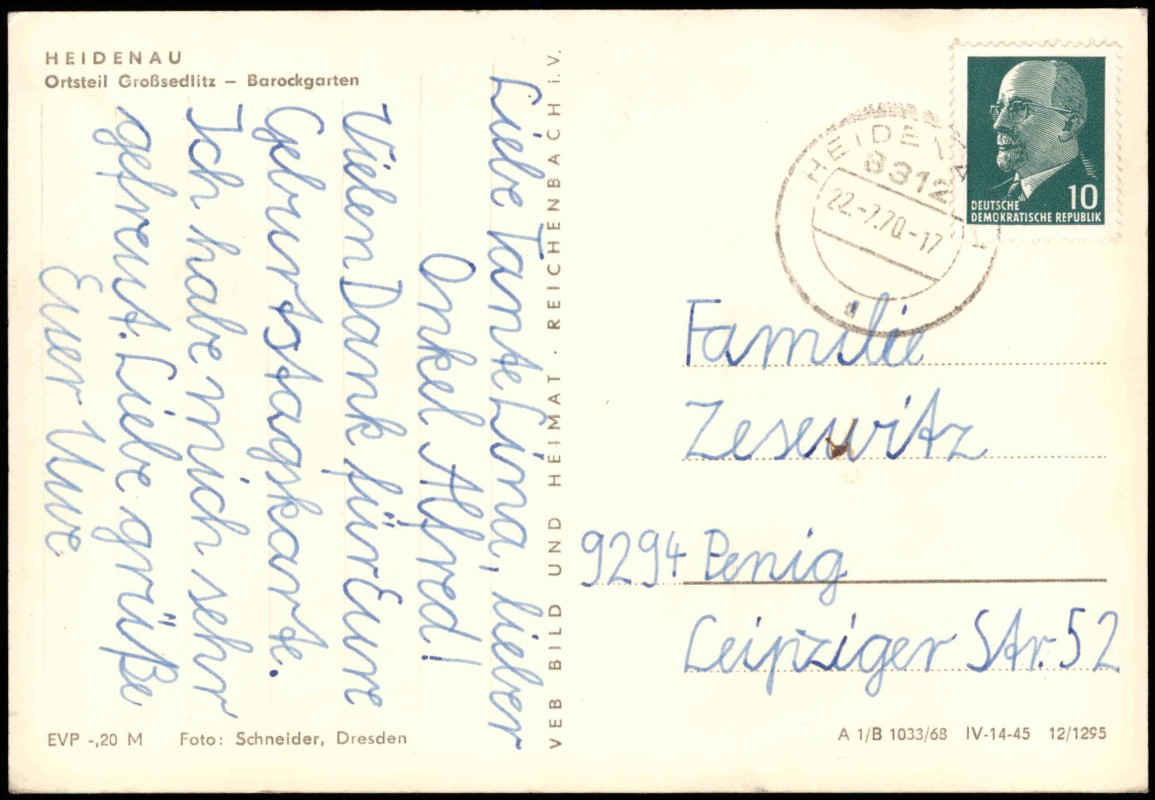 HEIDENAU
Ortsteil Großsedlitz – Barockgarten
Liebe Tante Lina, lieber
Onkel Alfred!
Vielen Dank für Eure
Geburtstagskarte.
Ich habe mich sehr
gefreut. Liebe grüße
Euer Uwe
VEB BILD UND HEIMAT · REICHENBACH i.V.
HEIDENA
8312
22.-7.70.-17
a
10
DEUTSCHE
DEMOKRATISCHE REPUBLIK
Familie
Zesewitz
9294 Penig
Leipziger Str. 52
EVP -,20 M Foto: Schneider, Dresden
A 1/B 1033/68 IV-14-45 12/1295